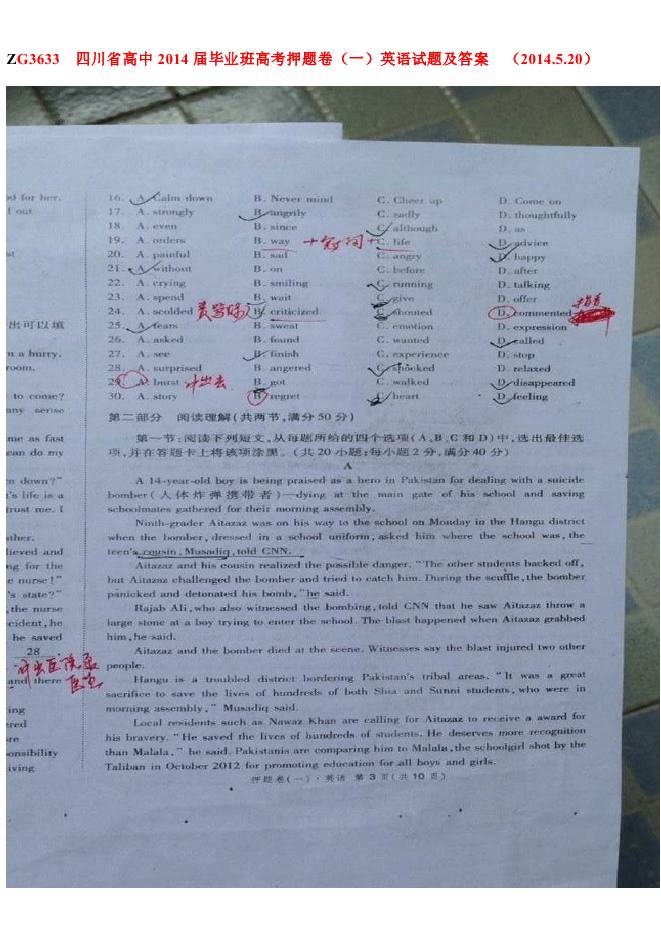 ZG3633 四川省高中 2014 届毕业班高考押题卷（一）英语试题及答案 （2014.5.20）
16. A. Calm down B. Never mind C. Cheer up D. Come on
17. A. strongly B. angrily C. sadly D. thoughtfully
18. A. even B. since C. although D. as
19. A. orders B. way C. life D. advice
20. A. painful B. sad C. angry D. happy
21. A. without B. on C. before D. after
22. A. crying B. smiling C. running D. talking
23. A. spend B. wait C. give D. offer
24. A. scolded B. criticized C. shouted D. commented
25. A. tears B. sweat C. emotion D. expression
26. A. asked B. found C. wanted D. called
27. A. see B. finish C. experience D. stop
28. A. surprised B. angered C. shocked D. relaxed
29. A. burst 冲出去 B. got C. walked D. disappeared
30. A. story B. regret C. heart D. feeling
第二部分 阅读理解(共两节,满分 50 分)
第一节:阅读下列短文,从每题所给的四个选项(A、B、C 和 D)中,选出最佳选
项,并在答题卡上将该项涂黑。(共 20 小题;每小题 2 分,满分 40 分)
A
A 14-year-old boy is being praised as a hero in Pakistan for dealing with a suicide
bomber(人体炸弹携带者)—dying at the main gate of his school and saving
schoolmates gathered for their morning assembly.
Ninth-grader Aitazaz was on his way to the school on Monday in the Hangu district
when the bomber, dressed in a school uniform, asked him where the school was, the
teen's cousin, Musadiq, told CNN.
Aitazaz and his cousin realized the possible danger. "The other students backed off,
but Aitazaz challenged the bomber and tried to catch him. During the scuffle, the bomber
panicked and detonated his bomb," he said.
Rajab Ali, who also witnessed the bombing, told CNN that he saw Aitazaz throw a
large stone at a boy trying to enter the school. The blast happened when Aitazaz grabbed
him, he said.
Aitazaz and the bomber died at the scene. Witnesses say the blast injured two other
people.
Hangu is a troubled district bordering Pakistan's tribal areas. "It was a great
sacrifice to save the lives of hundreds of both Shia and Sunni students, who were in
morning assembly," Musadiq said.
Local residents such as Nawaz Khan are calling for Aitazaz to receive a award for
his bravery. "He saved the lives of hundreds of students. He deserves more recognition
than Malala," he said. Pakistanis are comparing him to Malala, the schoolgirl shot by the
Taliban in October 2012 for promoting education for all boys and girls.
押题卷(一)·英语 第 3 页(共 10 页)
for her.
out
出可以填
a hurry.
room.
to come?
any sense
me as fast
can do my
down?"
's life is a
trust me. I
other.
lieved and
ng for the
e nurse!"
's state?"
, the nurse
cident, he
he saved
28
and there
ing
red
re
onsibility
iving